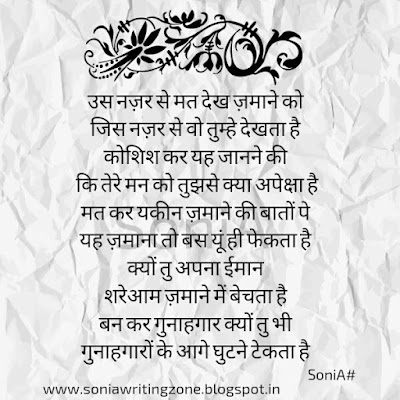 उस नज़र से मत देख ज़माने को
जिस नज़र से वो तुम्हे देखता है
कोशिश कर यह जानने की
कि तेरे मन को तुझसे क्या अपेक्षा है
मत कर यकीन ज़माने की बातों पे
यह ज़माना तो बस यूं ही फेकता है
क्यों तु अपना ईमान
शरेआम ज़माने में बेचता है
बन कर गुनाहगार क्यों तु भी
गुनाहगारों के आगे घुटने टेकता है
SoniA#
www.soniawritingzone.blogspot.in